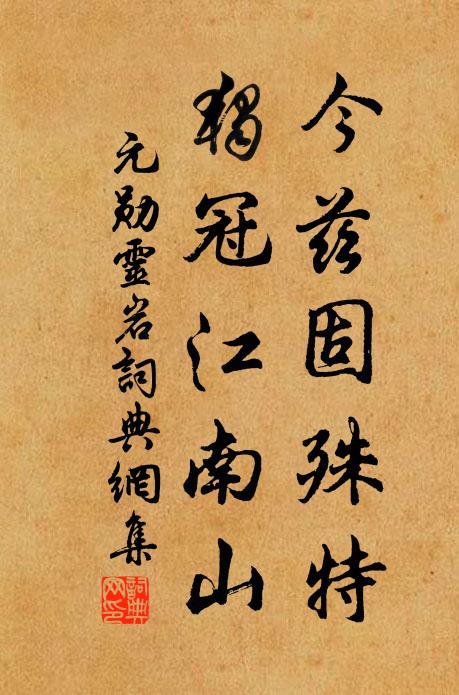 今茲固殊特
獨冠江南山
元勛靈岩詞典網集
詞典網印